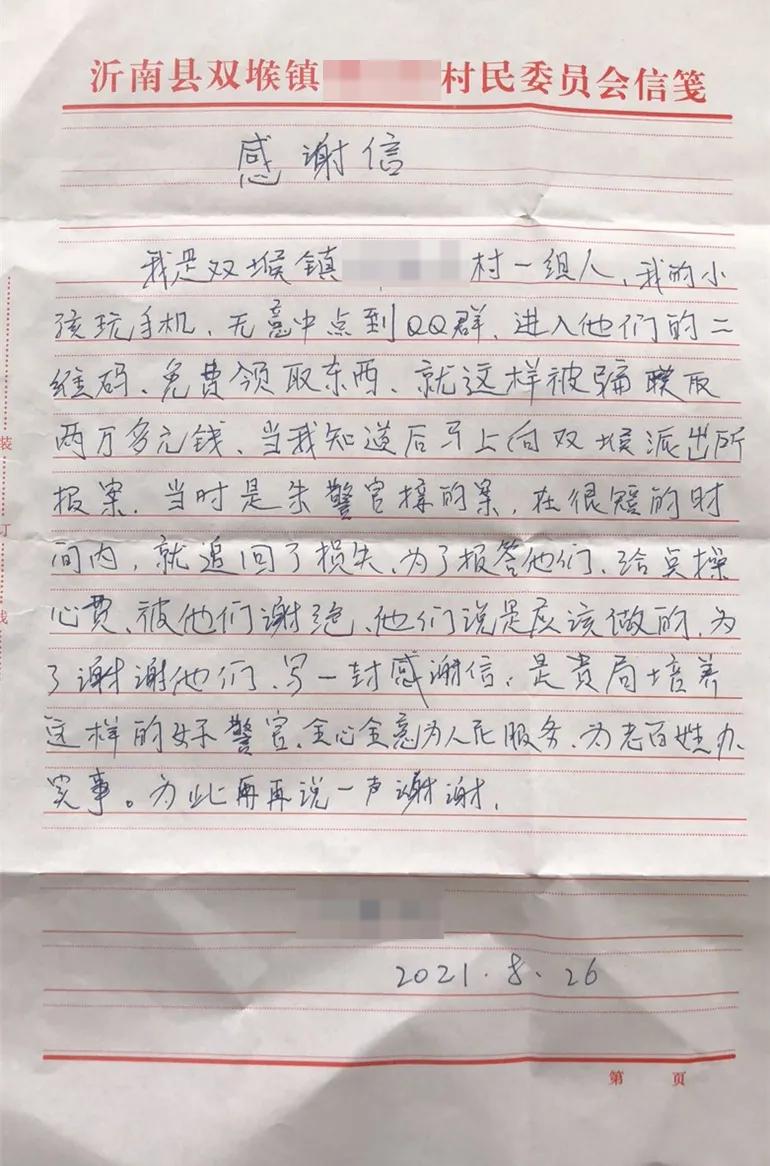 沂南县双堠镇 村民委员会信笺
感谢信
我是双堠镇 村一组人，我的小
孩玩手机、无意中点到QQ群、进入他们的二
维码、免费领取东西、就这样被骗取
两万多元钱、当我知道后马上向双堠派出所
报案.当时是朱警官接的案，在很短的时
间内，就追回了损失、为了报答他们、给点操
心费、被他们谢绝、他们说是应该做的、为
了谢谢他们、写一封感谢信、是贵局培养
这样的好警官、全心全意为人民服务、为老百姓办
实事。为此再再说一声谢谢.
2021.8.26
第 页
装
订
线